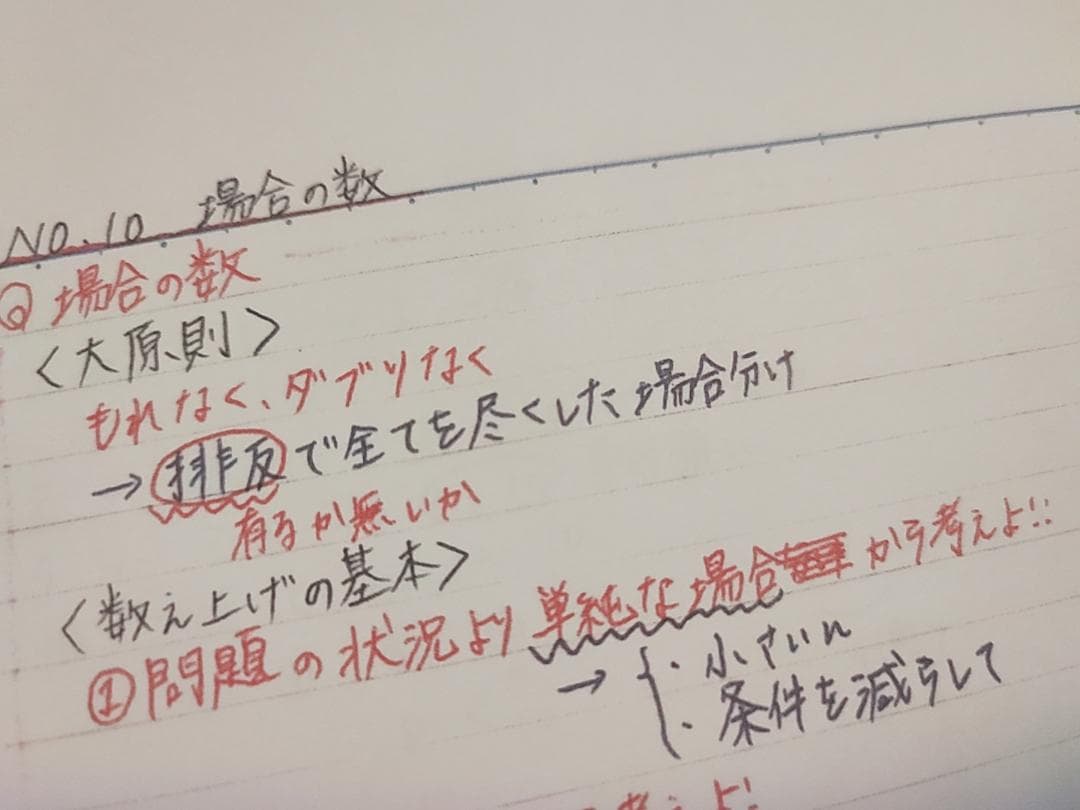 NO.10 場合の数
Q 場合の数
<大原則>
もれなく、ダブりなく
→排反で全てを尽くした場合分け
有るか無いか
<数え上げの基本>
①問題の状況より単純な場合から考えよ!!
→ ・小さいn
・条件を減らして
考えよ!